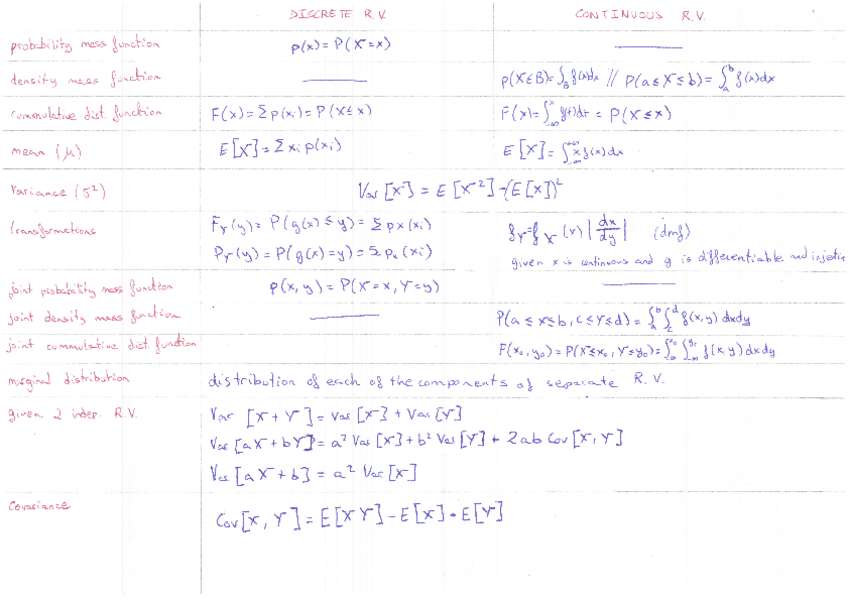 DISCRETE R.V. CONTINUOUS R.V.
probability mass function p(x)=P(X=x) ———
density mass function ——— p(X∈B)=∫_B f(x)dx // P(a≤X≤b)=∫_a^b f(x)dx
cummulative dist. function F(x)=Σp(xi)=P(X≤x) F(x)=∫_-∞^x f(t)dt = P(X≤x)
mean (μ) E[X]=Σxi p(xi) E[X]=∫_-∞^+∞ x f(x)dx
Variance (σ²) Var[X] = E[X²]-(E[X])²
transformations F_Y(y)= P(g(x)≤y)=Σ p_X(xi) f_Y=f_X(x) |dx/dy| (dmf)
P_Y(y)=P(g(x)=y)=Σ p_X(xi) given x is continuous and g is differentiable and injective
joint probability mass function p(x,y)=P(X=x, Y=y) ———
joint density mass function ——— P(a≤x≤b, c≤Y≤d)=∫_a^b∫_c^d f(x,y) dxdy
joint cummulative dist. function F(x₀,y₀)=P(X≤x₀, Y≤y₀)=∫_-∞^x₀∫_-∞^y₀ f(x,y)dxdy
marginal distribution distribution of each of the components of separate R.V.
given 2 indep. R.V. Var [X+Y]=Var[X]+Var[Y]
Var[aX+bY]=a² Var[X]+b² Var[Y]+2ab Cov[X,Y]
Var[aX+b]=a² Var[X]
Covariance Cov[X,Y]=E[XY]-E[X]•E[Y]